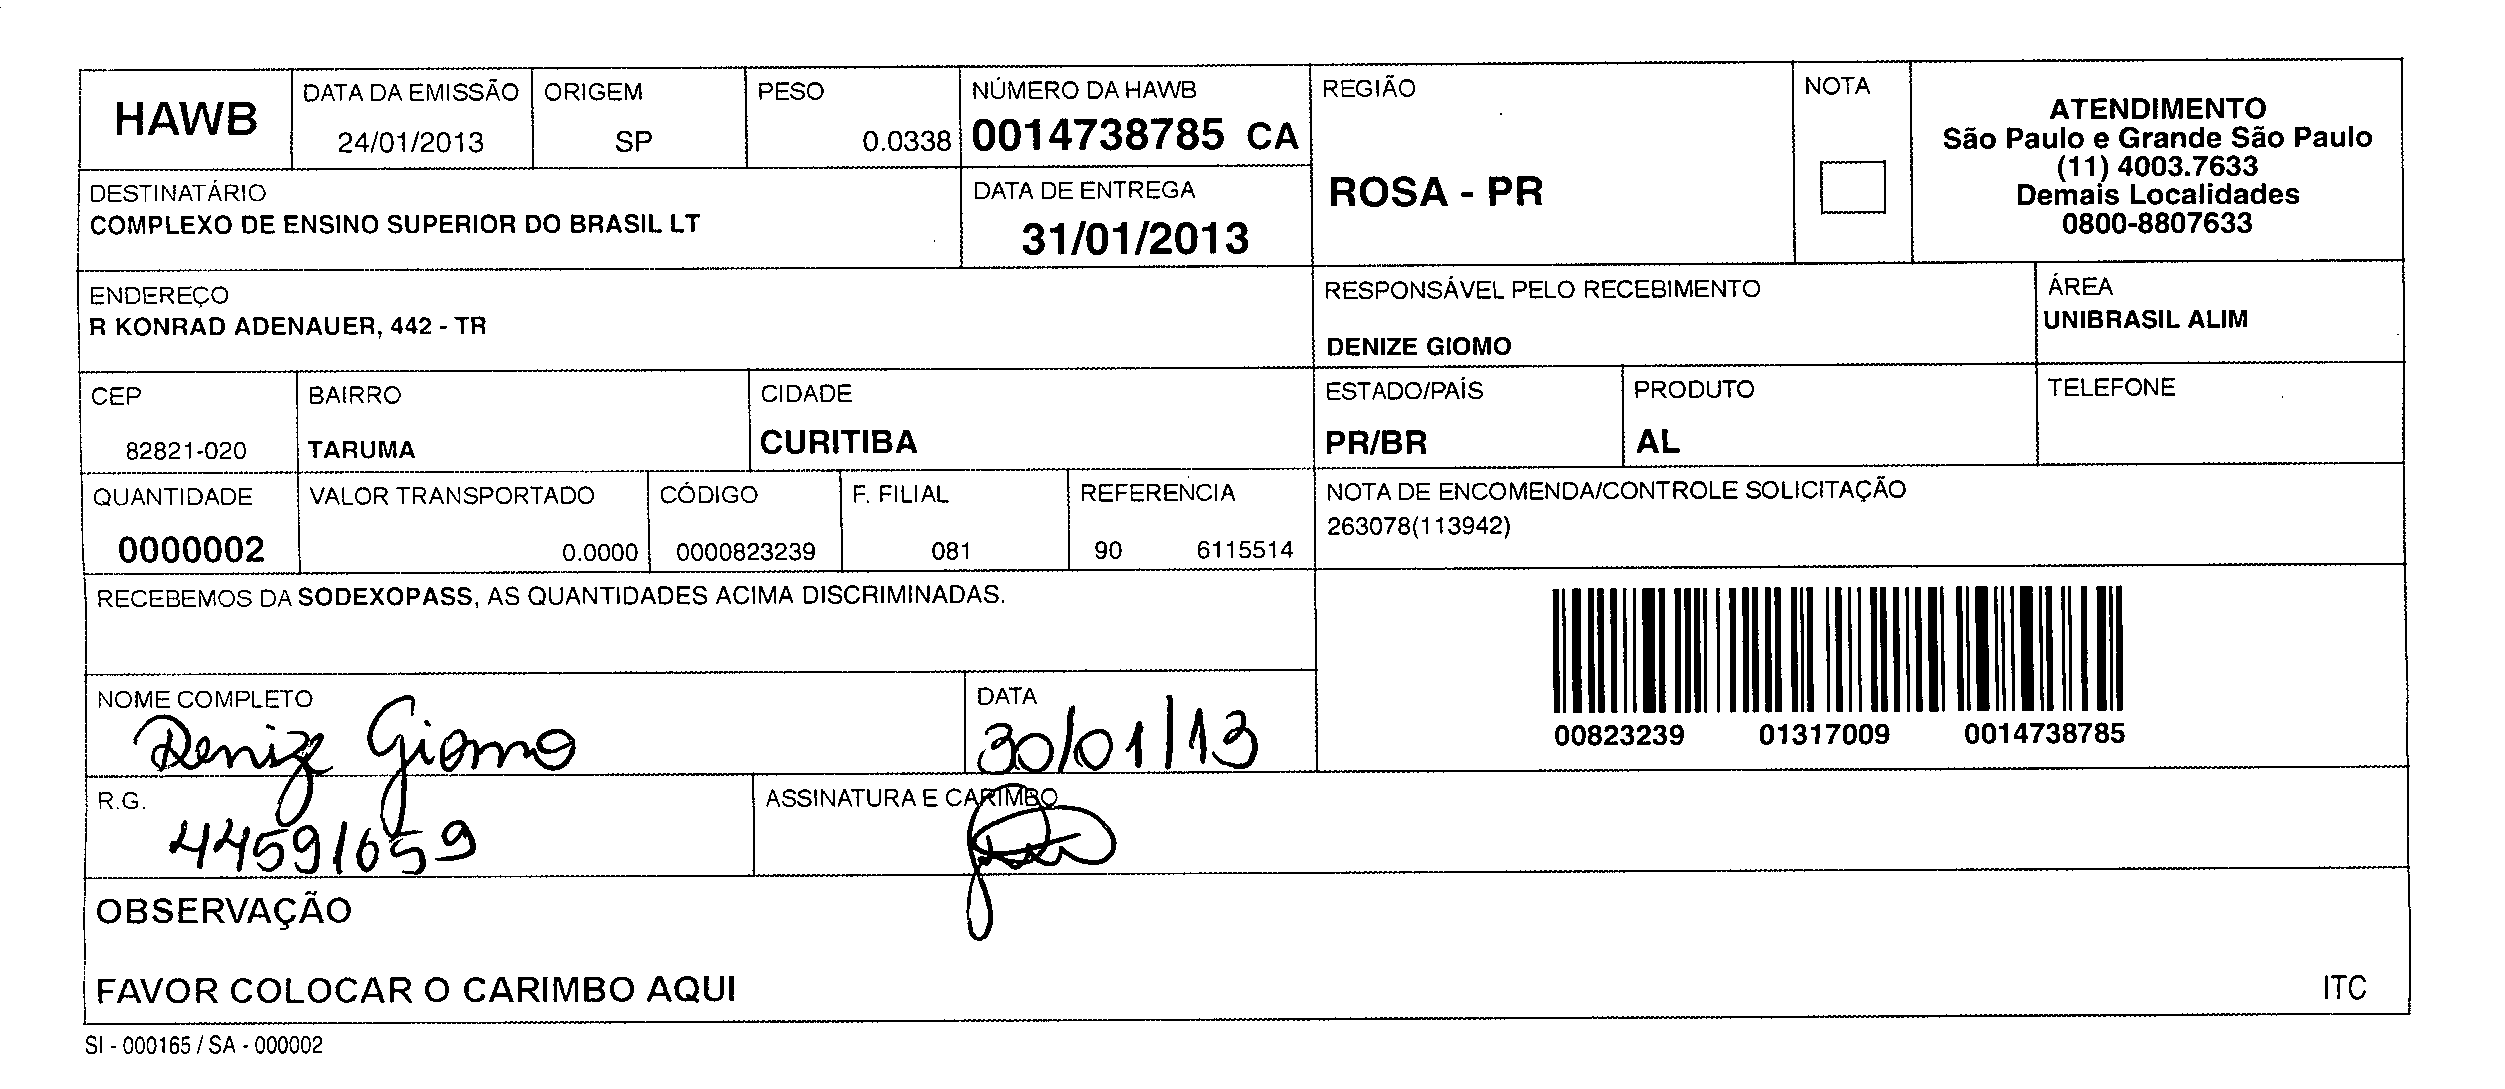 HAWB
DATA DA EMISSÃO
24/01/2013
ORIGEM
SP
PESO
0.0338
NÚMERO DA HAWB
0014738785 CA
REGIÃO
ROSA - PR
NOTA
ATENDIMENTO
São Paulo e Grande São Paulo
(11) 4003.7633
Demais Localidades
0800-8807633
DESTINATÁRIO
COMPLEXO DE ENSINO SUPERIOR DO BRASIL LT
DATA DE ENTREGA
31/01/2013
ENDEREÇO
R KONRAD ADENAUER, 442 - TR
RESPONSÁVEL PELO RECEBIMENTO
DENIZE GIOMO
ÁREA
UNIBRASIL ALIM
CEP
82821-020
BAIRRO
TARUMA
CIDADE
CURITIBA
ESTADO/PAÍS
PR/BR
PRODUTO
AL
TELEFONE
QUANTIDADE
0000002
VALOR TRANSPORTADO
0.0000
CÓDIGO
0000823239
F. FILIAL
081
REFERENCIA
90 6115514
NOTA DE ENCOMENDA/CONTROLE SOLICITAÇÃO
263078(113942)
RECEBEMOS DA SODEXOPASS, AS QUANTIDADES ACIMA DISCRIMINADAS.
00823239 01317009 0014738785
NOME COMPLETO
Denize Giomo
DATA
30/01/13
R.G.
44591659
ASSINATURA E CARIMBO
OBSERVAÇÃO
FAVOR COLOCAR O CARIMBO AQUI
ITC
SI - 000165 / SA - 000002